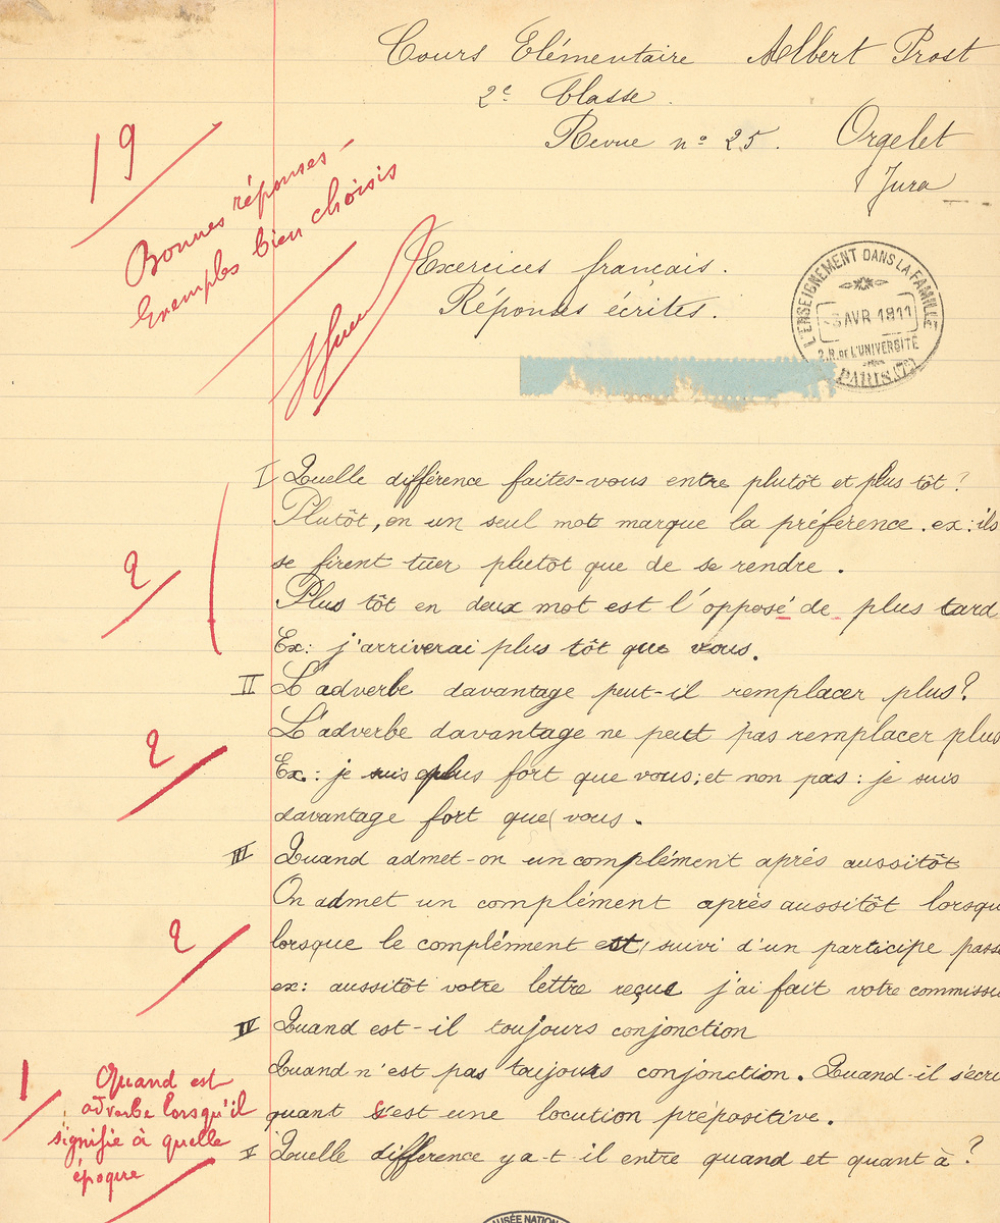 Cours Elémentaire Albert Prost
2e Classe.
Revue n° 25. Orgelet
Jura
19
Bonnes réponses -
Exemples bien choisis
Exercices français.
Réponses écrites.
L'ENSEIGNEMENT DANS LA FAMILLE
AVR 1911
2.R. DE L'UNIVERSITÉ
PARIS
I Quelle différence faites-vous entre plutôt et plus tôt?
Plutôt, en un seul mot marque la préférence. ex: ils
se firent tuer plutôt que de se rendre.
2
Plus tôt en deux mot est l'opposé de plus tard
Ex: j'arriverai plus tôt que vous.
II L'adverbe davantage peut-il remplacer plus?
L'adverbe davantage ne peut pas remplacer plus
2
Ex.: je suis plus fort que vous; et non pas: je suis
davantage fort que vous.
III Quand admet-on un complément après aussitôt
On admet un complément après aussitôt lorsqu
2
lorsque le complément est suivi d'un participe passé
ex: aussitôt votre lettre reçue j'ai fait votre commissi
IV Quand est-il toujours conjonction
Quand n'est pas toujours conjonction. Quand-il s'écri
quant s'est une locution prépositive.
1
Quand est
adverbe lorsqu'il
signifie à quelle
époque
V Quelle différence y a-t-il entre quand et quant à?
MUSÉE NATION